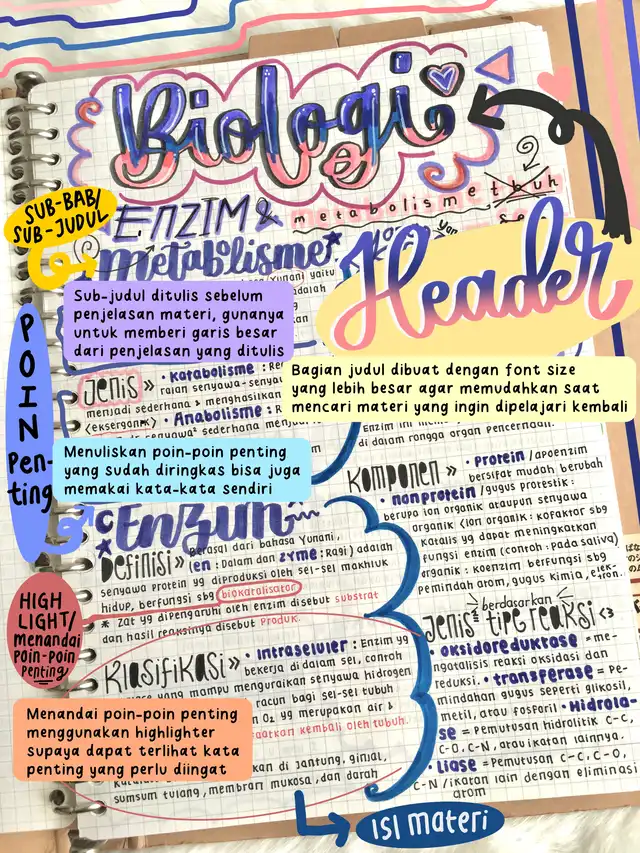 Biologi
SUB-BAB/
SUB-JUDUL
ENZIM &
metabolisme
metabolisme tbuh
Header
Sub-judul ditulis sebelum
penjelasan materi, gunanya
untuk memberi garis besar
dari penjelasan yang ditulis
Bagian judul dibuat dengan font size
yang lebih besar agar memudahkan saat
mencari materi yang ingin dipelajari kembali
/Yunani yaitu
Jenis >> • Katabolisme :
menjadi sederhana & menghasilkan
<eksergonik>
• Anabolisme :
sederhana menjadi
POIN
Pen-
ting
Menuliskan poin-poin penting
yang sudah diringkas bisa juga
memakai kata-kata sendiri
Enzim
Definisi >> Berasal dari bahasa Yunani,
(en : Dalam dan zyme : Ragi) adalah
senyawa protein yg diproduksi oleh sel-sel makhluk
hidup, berfungsi sbg biokatalisator
* Zat yg dipengaruhi oleh enzim disebut substrat
dan hasil reaksinya disebut Produk.
HIGH
LIGHT/
menandai
poin-poin
PENTING
Klasifikasi >> • Intraseluler : Enzim yg
bekerja di dalam sel, contoh
yang mampu menguraikan senyawa hidrogen
racun bagi sel-sel tubuh
O₂ yg merupakan air &
kembali oleh tubuh.
Menandai poin-poin penting
menggunakan highlighter
supaya dapat terlihat kata
penting yang perlu diingat
di jantung, ginjal,
sumsum tulang, membran mukosa, dan darah
di dalam rongga organ pencernaan.
Komponen >> • Protein /apoenzim
bersifat mudah berubah
• nonprotein /gugus protestik :
berupa ion organik ataupun senyawa
organik (ion organik : kofaktor sbg
katalis yg dapat meningkatkan
fungsi enzim (contoh : pada saliva)
organik : koenzim berfungsi sbg
pemindah atom, gugus kimia, elektron.
berdasarkan
Jenis tipe reaksi <3
• oksidoreduktase = me-
ngatalisis reaksi oksidasi dan
reduksi. • transferase = Pe-
mindahan gugus seperti glikosil,
metil, atau fosforil • Hidrola-
se = Pemutusan hidrolitik C-C,
C-O, C-N, atau ikatan lainnya.
• Liase = Pemutusan C-C, C-O,
C-N /ikatan lain dengan eliminasi
atom
ISI materi